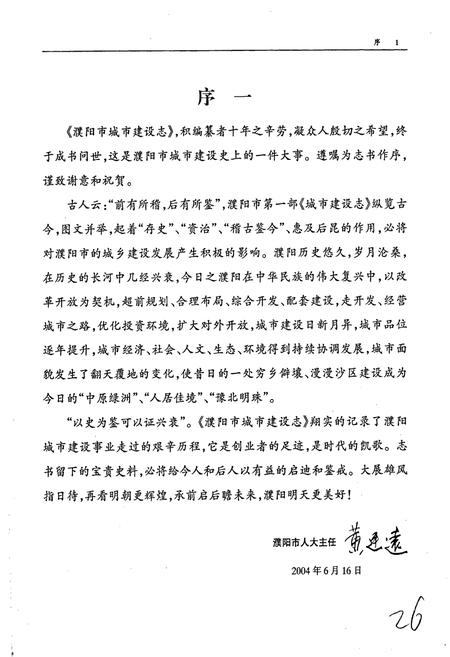 序 1
序 一
《濮阳市城市建设志》,积编纂者十年之辛劳,凝众人殷切之希望,终
于成书问世,这是濮阳市城市建设史上的一件大事。遵嘱为志书作序,
谨致谢意和祝贺。
古人云:“前有所稽,后有所鉴”,濮阳市第一部《城市建设志》纵览古
今,图文并举,起着“存史”、“资治”、“稽古鉴今”、惠及后昆的作用,必将
对濮阳市的城乡建设发展产生积极的影响。濮阳历史悠久,岁月沧桑,
在历史的长河中几经兴衰,今日之濮阳在中华民族的伟大复兴中,以改
革开放为契机,超前规划、合理布局、综合开发、配套建设,走开发、经营
城市之路,优化投资环境,扩大对外开放,城市建设日新月异,城市品位
逐年提升,城市经济、社会、人文、生态、环境得到持续协调发展,城市面
貌发生了翻天覆地的变化,使昔日的一处穷乡僻壤、漫漫沙区建设成为
今日的“中原绿洲”、“人居佳境”、“豫北明珠”。
“以史为鉴可以证兴衰”。《濮阳市城市建设志》翔实的记录了濮阳
城市建设事业走过的艰辛历程,它是创业者的足迹,是时代的凯歌。志
书留下的宝贵史料,必将给今人和后人以有益的启迪和鉴戒。大展雄风
指日待,再看明朝更辉煌,承前启后瞻未来,濮阳明天更美好!
濮阳市人大主任
2004年6月16日
26